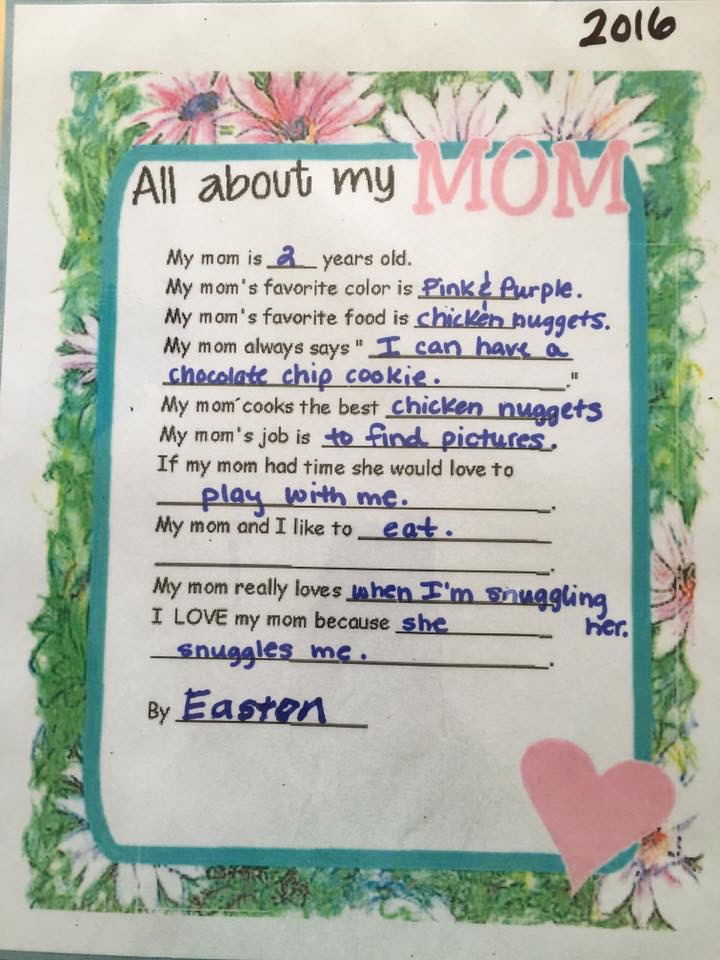 2016
All about my MOM
My mom is 2 years old.
My mom's favorite color is Pink & Purple.
My mom's favorite food is chicken nuggets.
My mom always says " I can have a
chocolate chip cookie. ."
My mom cooks the best chicken nuggets
My mom's job is to find pictures.
If my mom had time she would love to
play with me. .
My mom and I like to eat.
.
My mom really loves when I'm snuggling
her.
I LOVE my mom because she
snuggles me. .
By Easton